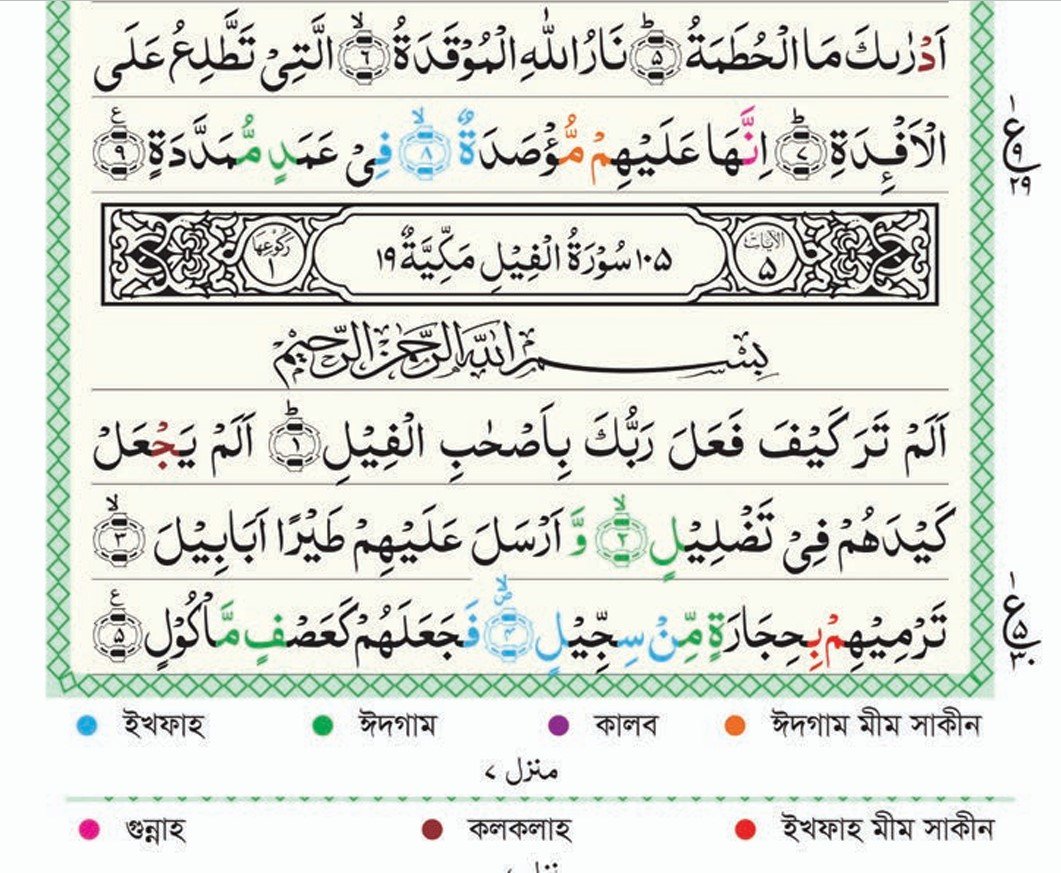 اَدۡرٰىكَ مَا الۡحُطَمَةُ ؕ ﴿۵﴾ نَارُ اللّٰهِ الۡمُوۡقَدَةُ ۙ ﴿۶﴾ الَّتِىۡ تَطَّلِعُ عَلَى
الۡاَفۡـِٕدَةِ ؕ ﴿۷﴾ اِنَّهَا عَلَيۡهِمۡ مُّؤۡصَدَةٌ ۙ ﴿۸﴾ فِىۡ عَمَدٍ مُّمَدَّدَةٍ ﴿۹﴾ ع
١ ع ۹ ۲۹
الآيات ۵
۱۰۵ سُوۡرَةُ الۡفِيۡلِ مَكِّيَّةٌ ۱۹
ركوعها ۱
بِسۡمِ اللّٰهِ الرَّحۡمٰنِ الرَّحِيۡمِ
اَلَمۡ تَرَ كَيۡفَ فَعَلَ رَبُّكَ بِاَصۡحٰبِ الۡفِيۡلِ ؕ ﴿۱﴾ اَلَمۡ يَجۡعَلۡ
كَيۡدَهُمۡ فِىۡ تَضۡلِيۡلٍ ۙ ﴿۲﴾ وَّ اَرۡسَلَ عَلَيۡهِمۡ طَيۡرًا اَبَابِيۡلَ ۙ ﴿۳﴾
تَرۡمِيۡهِمۡ بِحِجَارَةٍ مِّنۡ سِجِّيۡلٍ ۙ ص ﴿۴﴾ فَجَعَلَهُمۡ كَعَصۡفٍ مَّاۡكُوۡلٍ ﴿۵﴾ ع
١ ع ۵ ۳۰
ইখফাহ ঈদগাম কালব ঈদগাম মীম সাকীন
منزل ۷
গুন্নাহ কলকলাহ ইখফাহ মীম সাকীন